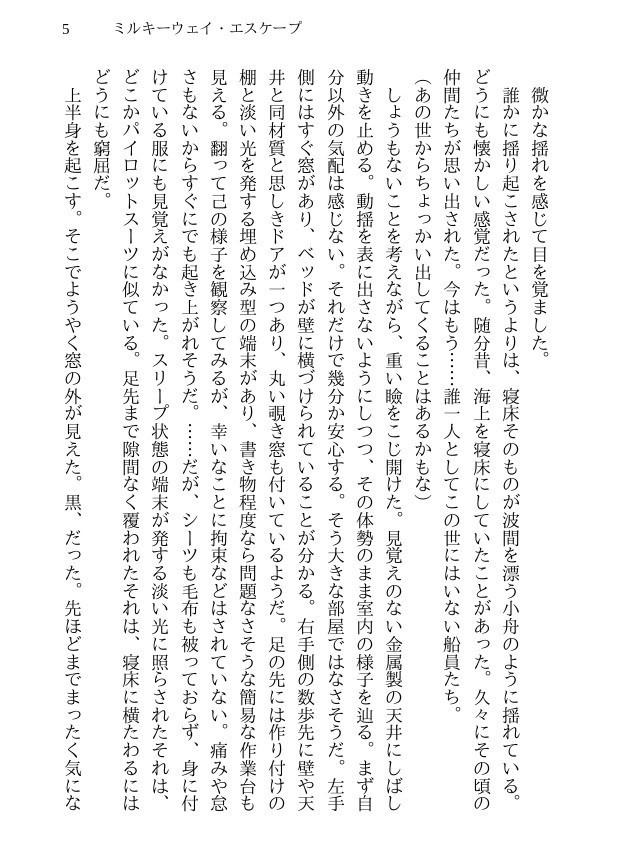 5 ミルキーウェイ・エスケープ
微かな揺れを感じて目を覚ました。
誰かに揺り起こされたというよりは、寝床そのものが波間を漂う小舟のように揺れている。
どうにも懐かしい感覚だった。随分昔、海上を寝床にしていたことがあった。久々にその頃の
仲間たちが思い出された。今はもう……誰一人としてこの世にはいない船員たち。
(あの世からちょっかい出してくることはあるかもな)
しょうもないことを考えながら、重い瞼をこじ開けた。見覚えのない金属製の天井にしばし
動きを止める。動揺を表に出さないようにしつつ、その体勢のまま室内の様子を辿る。まず自
分以外の気配は感じない。それだけで幾分か安心する。そう大きな部屋ではなさそうだ。左手
側にはすぐ窓があり、ベッドが壁に横づけられていることが分かる。右手側の数歩先に壁や天
井と同材質と思しきドアが一つあり、丸い覗き窓も付いているようだ。足の先には作り付けの
棚と淡い光を発する埋め込み型の端末があり、書き物程度なら問題なさそうな簡易な作業台も
見える。翻って己の様子を観察してみるが、幸いなことに拘束などはされていない。痛みや怠
さもないからすぐにでも起き上がれそうだ。……だが、シーツも毛布も被っておらず、身に付
けている服にも見覚えがなかった。スリープ状態の端末が発する淡い光に照らされたそれは、
どこかパイロットスーツに似ている。足先まで隙間なく覆われたそれは、寝床に横たわるには
どうにも窮屈だ。
上半身を起こす。そこでようやく窓の外が見えた。黒、だった。先ほどまでまったく気にな